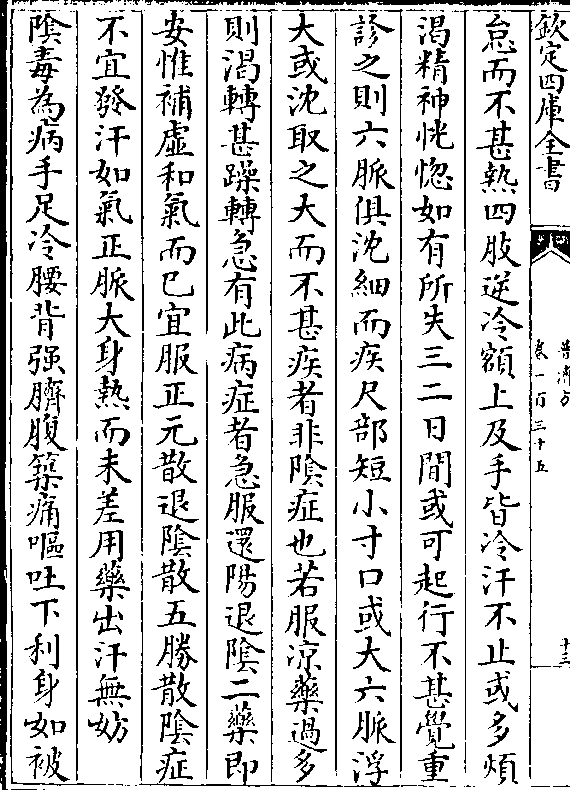 欽定四庫全書
普濟方
卷一百三十五
十三
怠而不甚熱四肢逆冷額上及手皆冷汗不止或多煩
渴精神恍惚如有所失三二日間或可起行不甚覺重
診之則六脈俱沈細而疾尺部短小寸口或大六脈浮
大或沈取之大而不甚疾者非隂症也若服凉藥過多
則渴轉甚躁轉急有此病症者急服還陽退隂二藥即
安惟補虛和氣而已宜服正元散退隂散五勝散隂症
不宜發汗如氣正脈大身熱而未差用藥出汗無妨
隂毒為病手足冷腰背强臍腹築痛嘔吐下利身如被